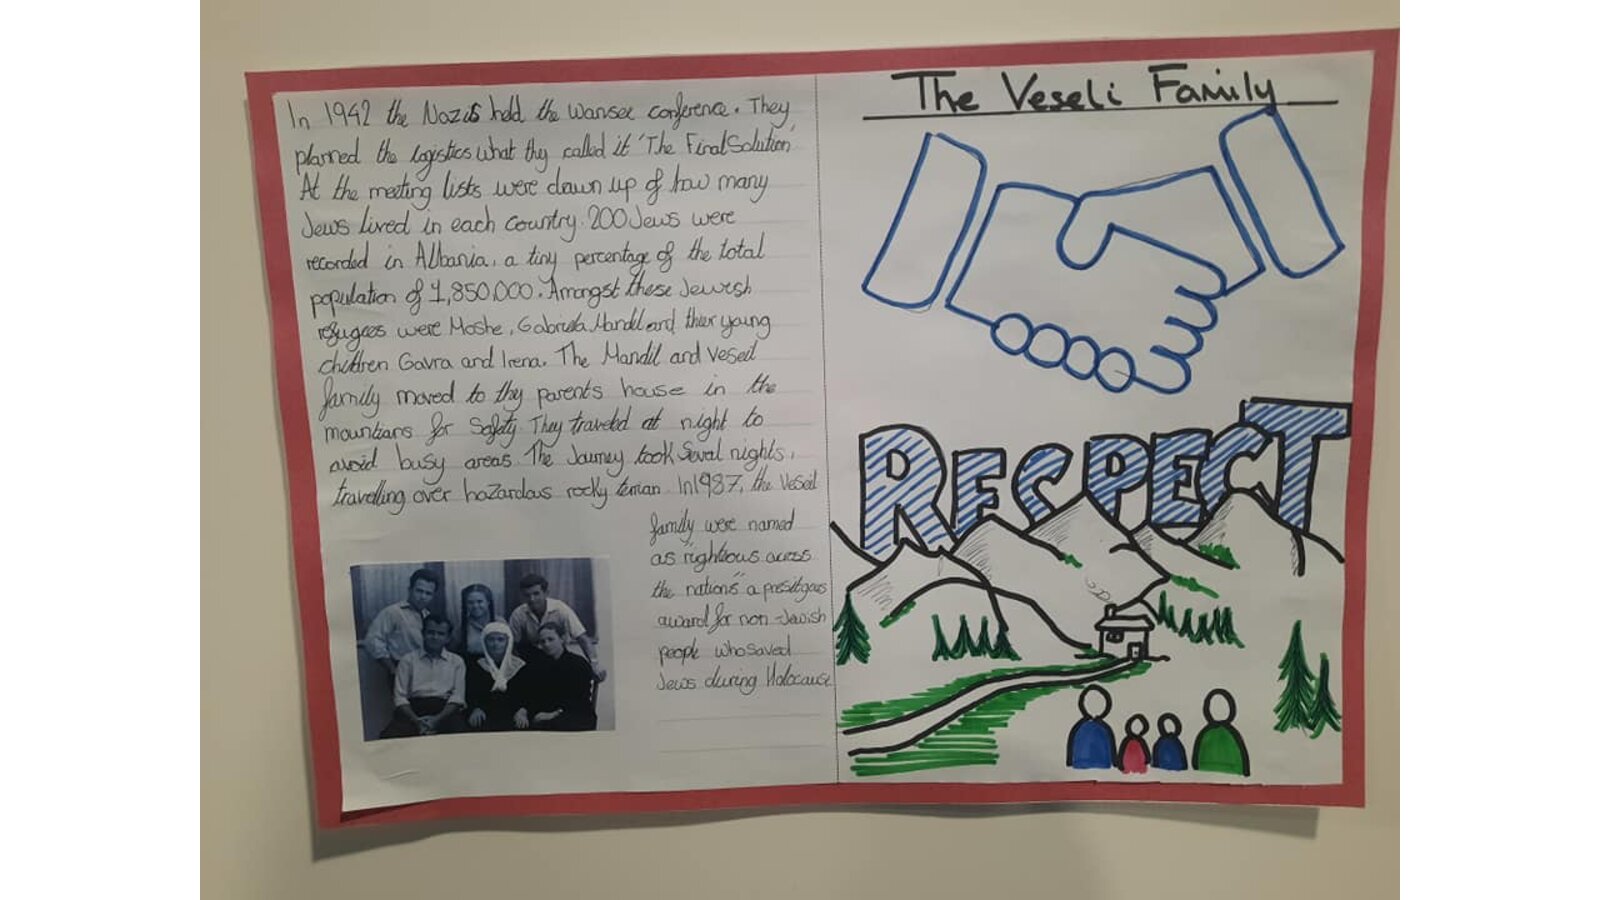 In 1942 the Nazis held the Wansee conference. They
planned the logistics what thy called it 'The Final Solution'
At the meeting lists were dawn up of how many
Jews lived in each country. 200 Jews were
recorded in Albania, a tiny percentage of the total
population of 1,850,000. Amongst these Jewish
refugees were Moshe, Gabriela Mandil and their young
children Gavra and Irena. The Mandil and Veseil
family moved to thy parents house in the
mountians for Safety. They traveled at night to
avoid busy areas. The Journey took Seval nights,
travelling over hazardous rocky terrian. In 1987, the Veseil
family were named
as "rightious across
the nations" a prestigous
award for non-Jewish
people who saved
Jews during Holocause
The Veseli Family
RESPECT